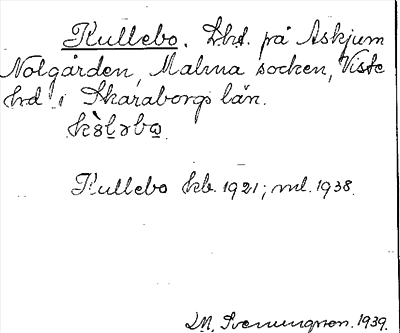 Kullebo. Lht. på Askjum
Nolgården, Malma socken, Viste
hd i Skaraborgs län.
Kullebo kb. 1921; ml. 1938.
Svenungson. 1939.